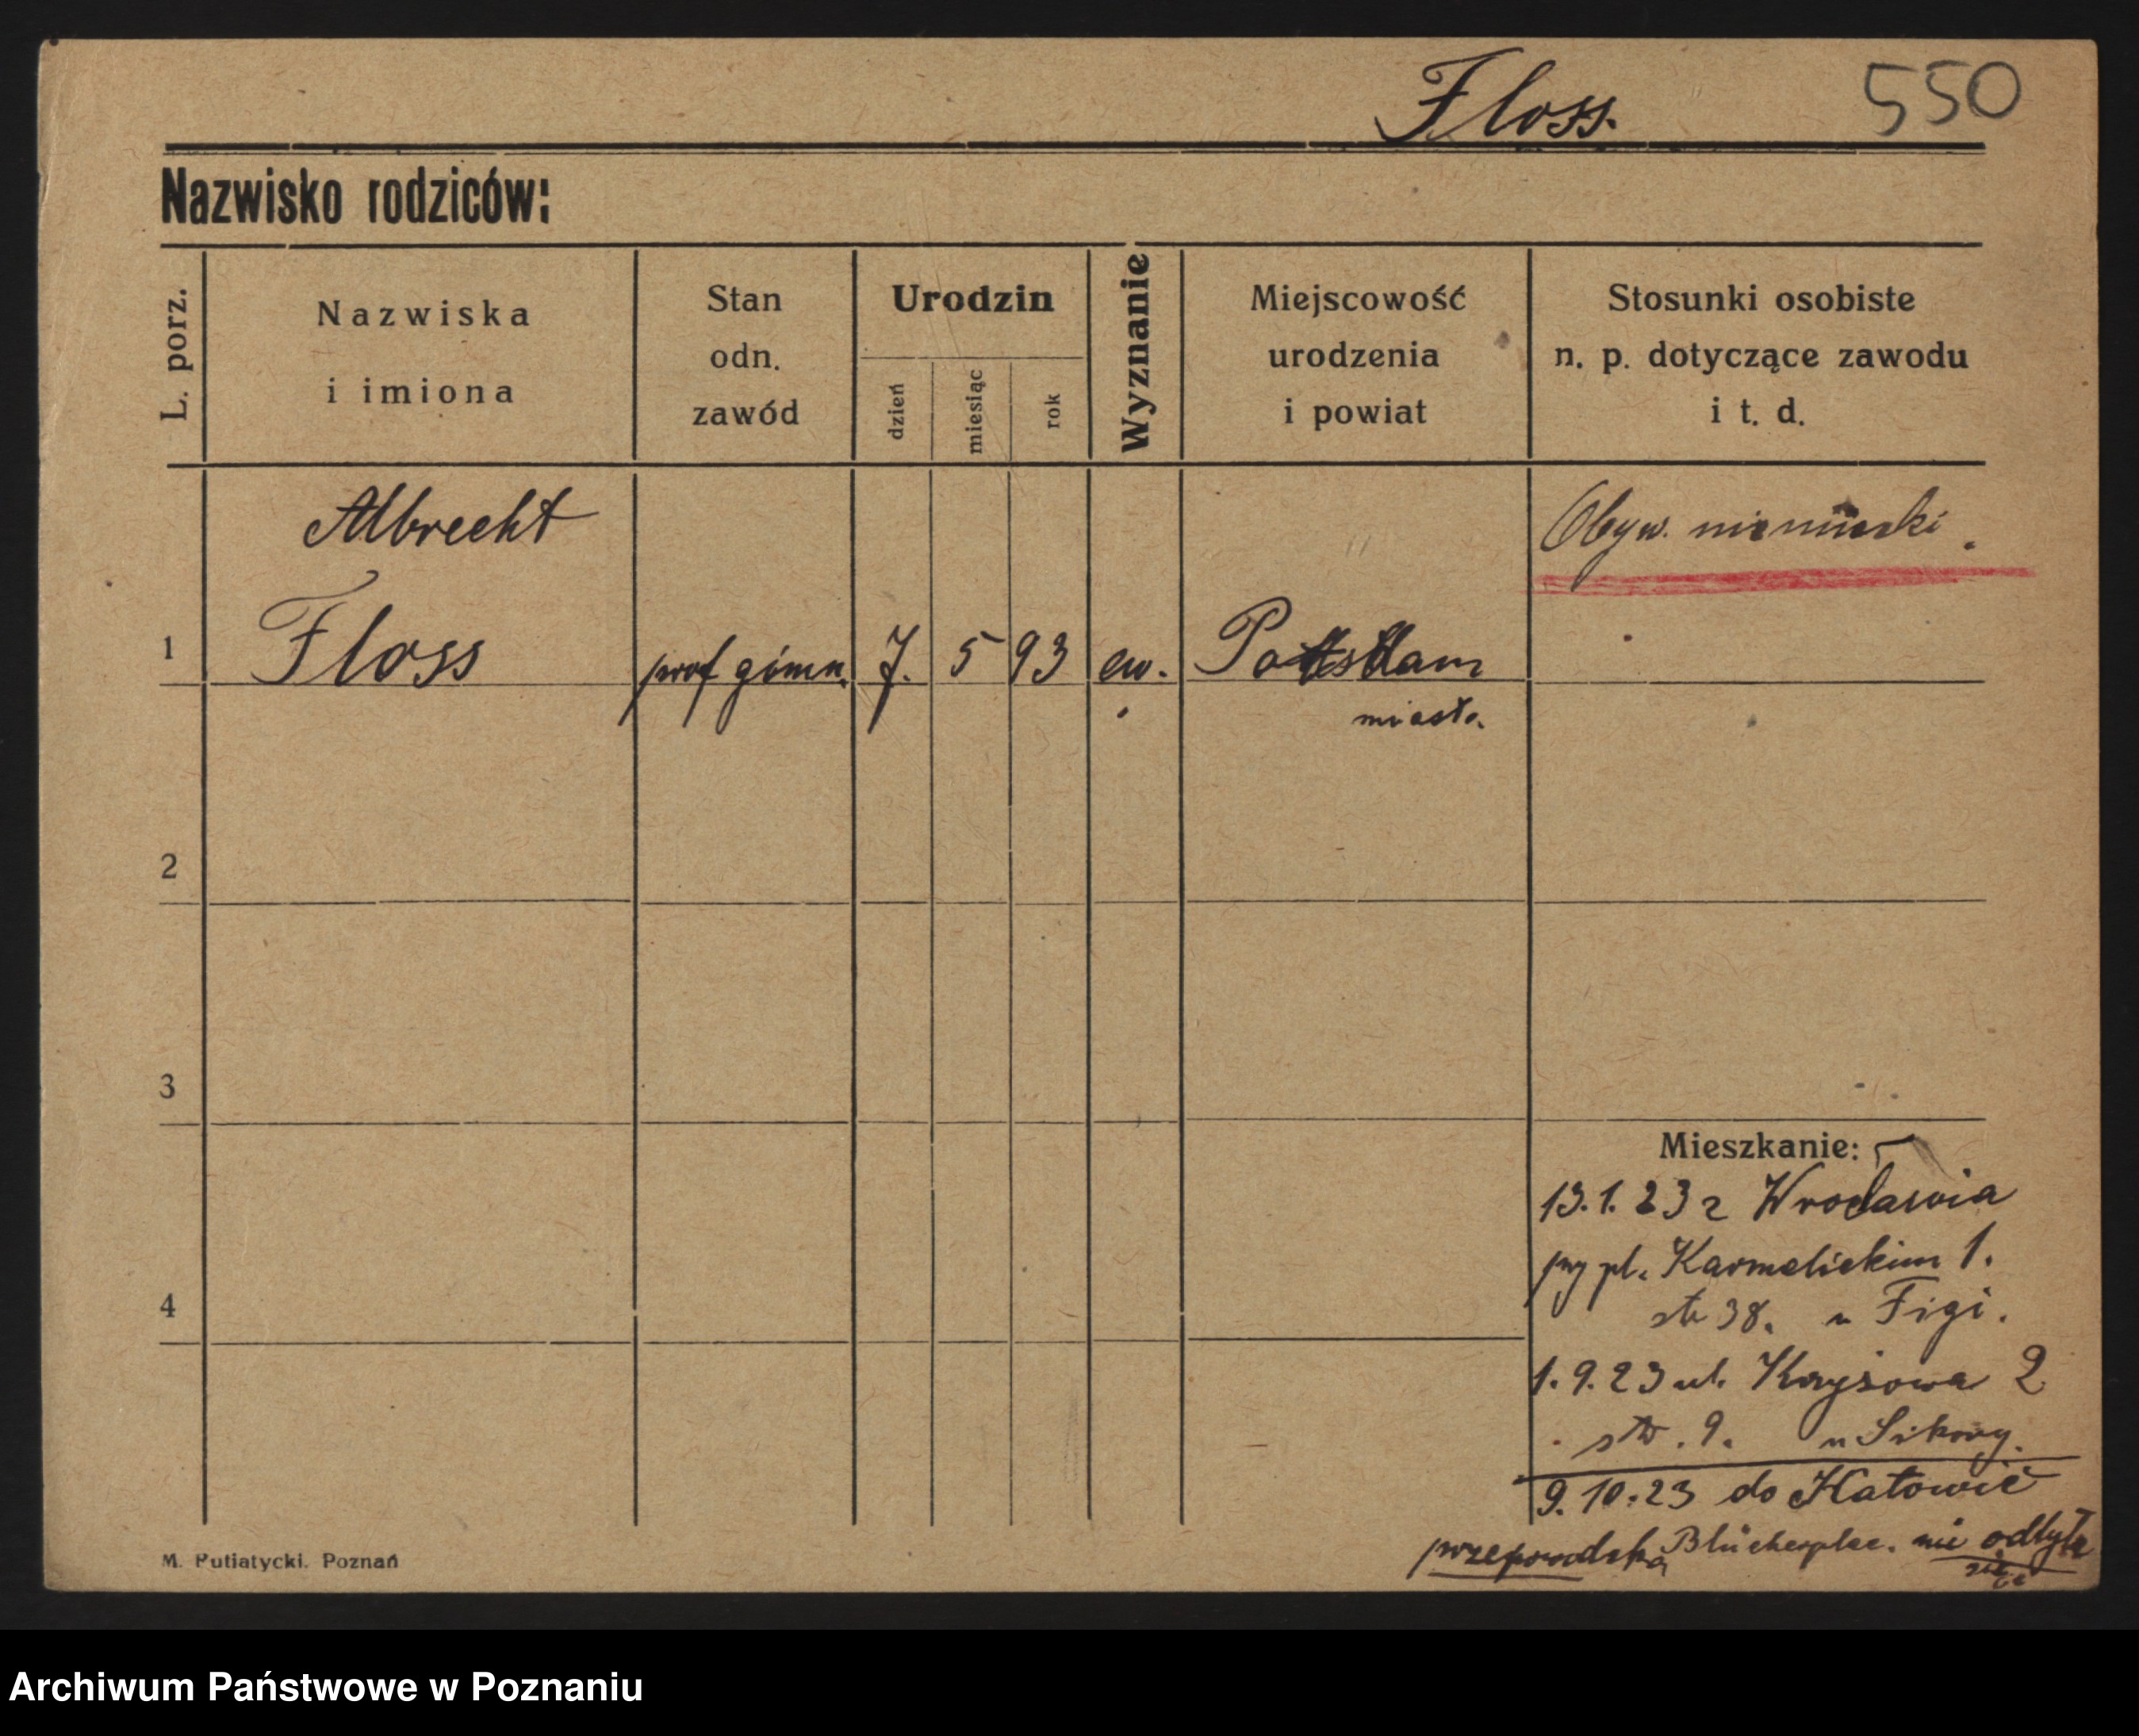 Floss.
550
Nazwisko rodziców:
L. porz.
Nazwiska
i imiona
Stan
odn.
zawód
Urodzin
dzień
miesiąc
rok
Wyznanie
Miejscowość
urodzenia
i powiat
Stosunki osobiste
n. p. dotyczące zawodu
i t. d.
Albrecht
Obyw. niemiecki.
1 Floss prof gimn. 7. 5 93 ew. Potsdam
miasto.
2
3
Mieszkanie:
13.1.23 z Wrocławia
przy pl. Karmelickim 1.
4
str 38. u Figi.
1.9.23 ul. Kryżowa 2
str. 9. u Sikory.
9.10.23 do Katowic
przeprowadzka nie odbyła
się
M. Putiatycki. Poznań
Archiwum Państwowe w Poznaniu